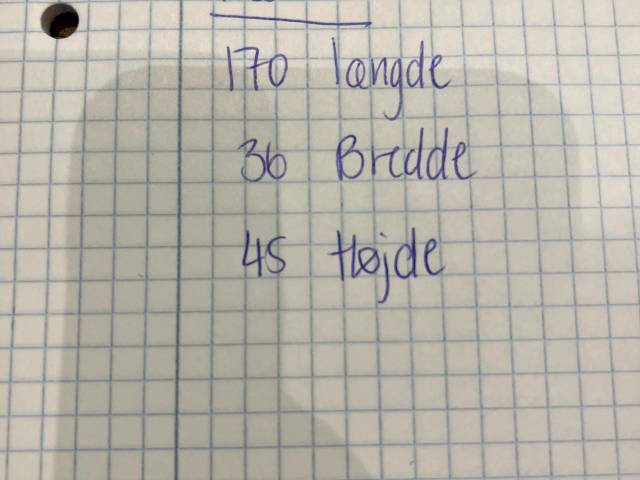 170 længde
36 Bredde
45 Højde